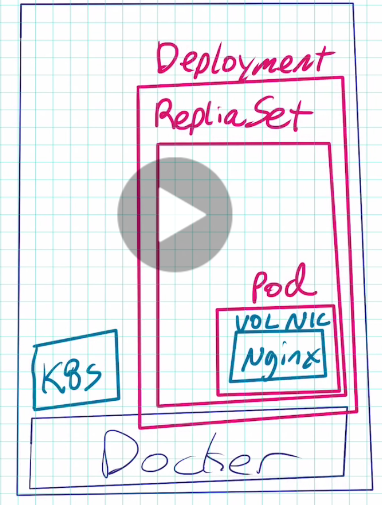 Deployment
RepliaSet
Pod
VOL NIC
Nginx
K8s
Docker